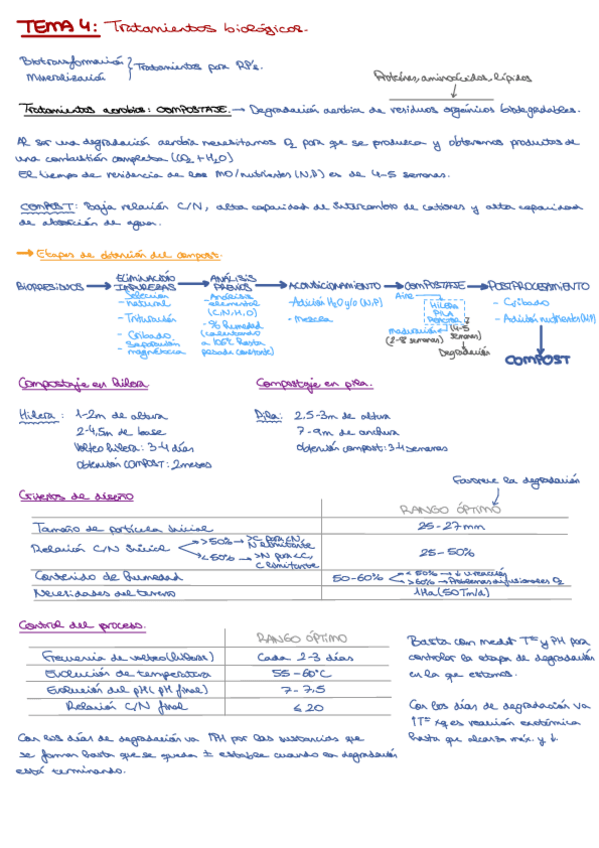 TEMA 4: Tratamientos biológicos.
Biotransformación
Mineralización
Tratamientos para RP's.
Proteínas, aminoácidos, lípidos
Tratamientos aerobios: COMPOSTAJE. → Degradación aerobia de residuos orgánicos biodegradables.
Al ser una degradación aerobia necesitamos O2 para que se produzca y obtenemos productos de
una combustión completa (CO2 + H2O)
El tiempo de residencia de los MO/nutrientes (N,P) es de 4-5 semanas.
COMPOST: Baja relación C/N, alta capacidad de intercambio de cationes y alta capacidad
de absorción de agua.
→ Etapas de obtención del compost.
BIORRESIDUOS → ELIMINACIÓN IMPUREZAS → ANÁLISIS PREVIOS → ACONDICIONAMIENTO → COMPOSTAJE → POSTPROCESAMIENTO
- Selección natural
- Trituración
- Cribado
- Separación magnética
- Análisis elemental (C,N,H,O)
- % Humedad (calentando a 105°C hasta pesada constante)
- Adición H2O y/o (N,P)
- Mezcla
Aire
HILERA
PILA
REACTOR
maduración (2-8 semanas)
(4-5 semanas)
Degradación
- Cribado
- Adición nutrientes (N,P)
COMPOST
Compostaje en hilera
Compostaje en pila.
Hilera: 1-2m de altura
2-4,5m de base
Volteo hilera: 3-4 días
Obtención COMPOST: 2 meses
Pila: 2,5-3m de altura
7-9m de anchura
obtención compost: 3-4 semanas
Favorece la degradación
Criterios de diseño
RANGO ÓPTIMO
Tamaño de partícula inicial
25-27mm
Relación C/N inicial
>50% → >C para <N, N limitante
<50% → >N para <C, C limitante
25-50%
Contenido de humedad
50-60%
<50% → ↓ v reacción
>60% → Problemas difusionales O2
Necesidades del terreno
1Ha (50Tm/d)
Control del proceso.
RANGO ÓPTIMO
Frecuencia de volteo (hilera)
Cada 2-3 días
Evolución de temperatura
55-60°C
Evolución del pH (pH final)
7-7.5
Relación C/N final
≤20
Basta con medir Tª y pH para
controlar la etapa de degradación
en la que estamos.
Con los días de degradación va
↑Tª xq es reacción exotérmica
hasta que alcanza máx. y ↓.
Con los días de degradación va ↑PH por las sustancias que
se forman hasta que se queda ± estable cuando la degradación
está terminando.